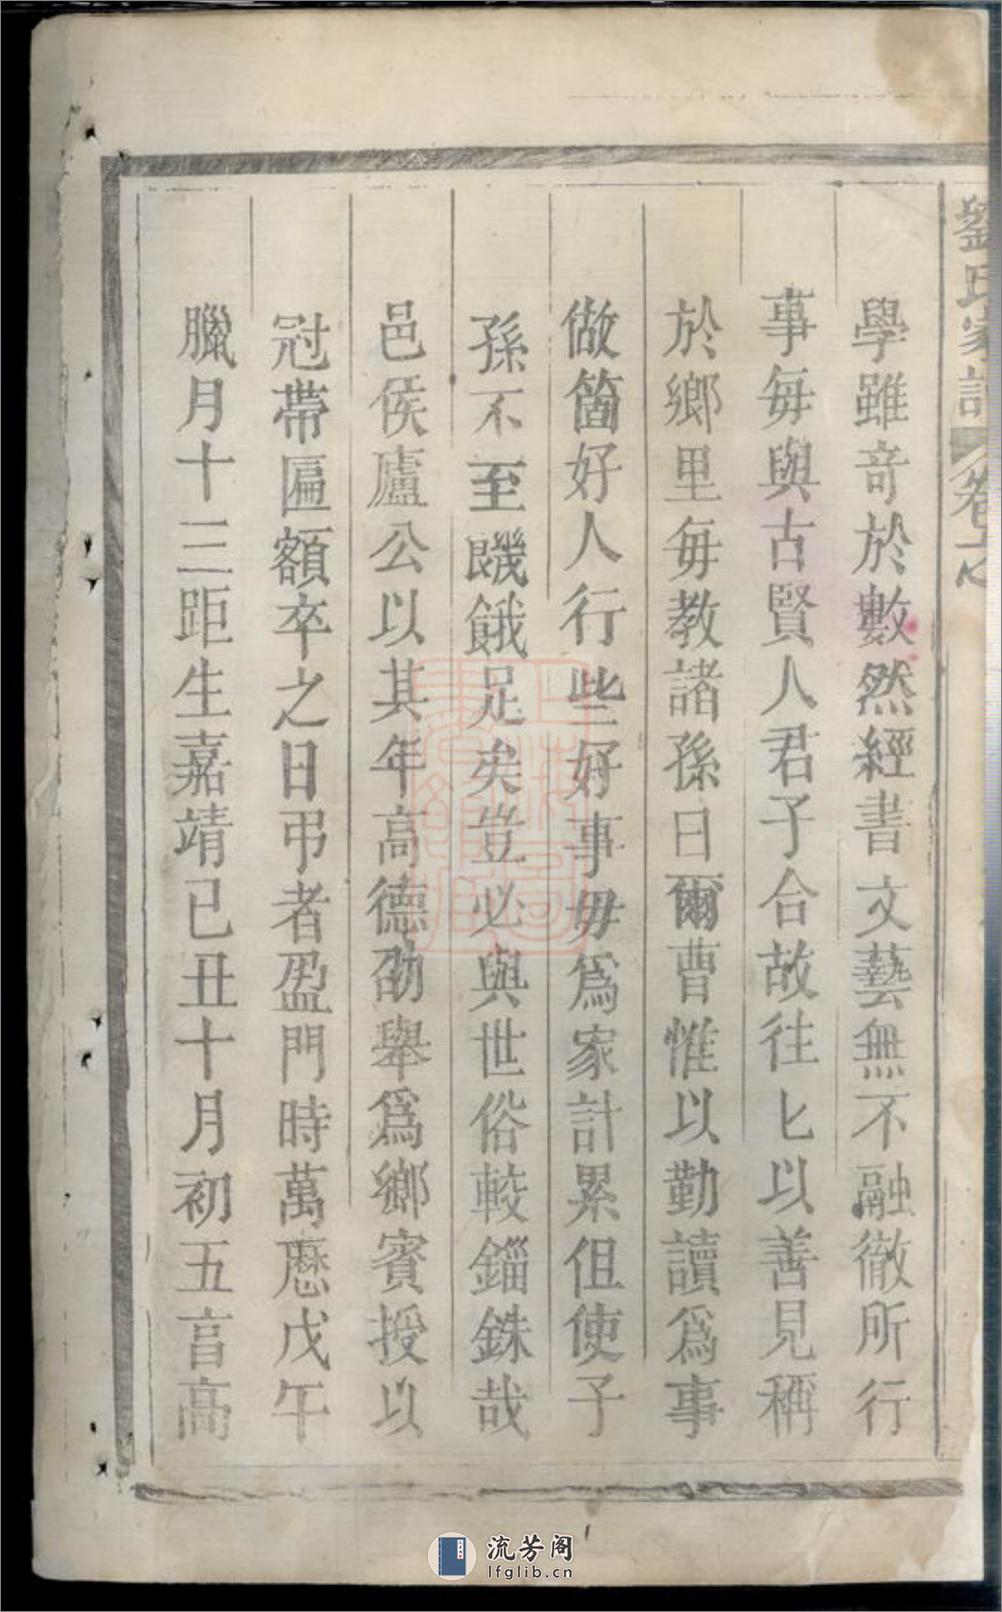 劉氏家譜 卷六
學雖竒於數然經書文藝無不融徹所行
事毎與古賢人君子合故往匕以善見稱
於鄉里毎教諸孫曰爾曹惟以勤讀爲事
做箇好人行些好事毋爲家計累但使子
孫不至饑餓足矣豈必與世俗較錙銖哉
邑侯廬公以其年高德劭舉爲鄉賓授以
冠帶匾額卒之日弔者盈門時萬曆戊午
臘月十三距生嘉靖已丑十月初五言高
流芳阁
lfglib.cn